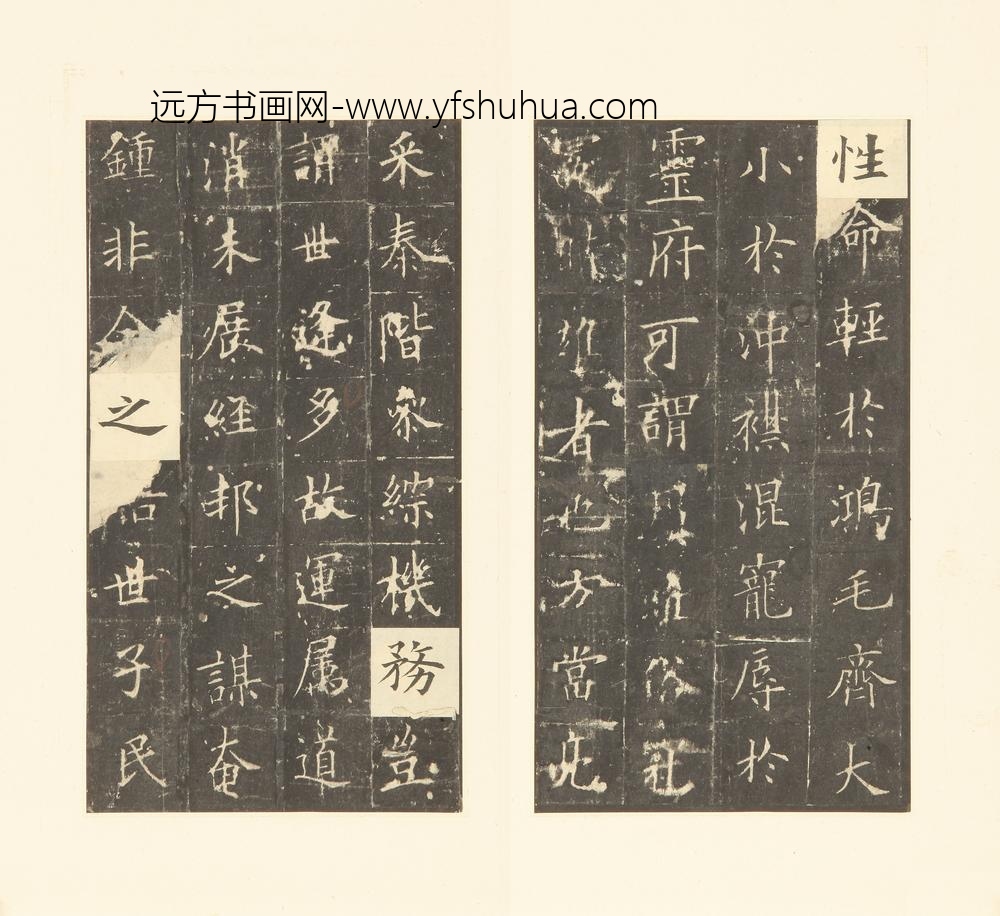 远方书画网-www.yfshuhua.com
性命輕於鴻毛齊大
小於沖襟混寵辱於
靈府可謂俗
雄者也方當亮
采泰階綜機務豈
謂世逢多故運属道
消未展經邦之謀奄
鍾非之世子民